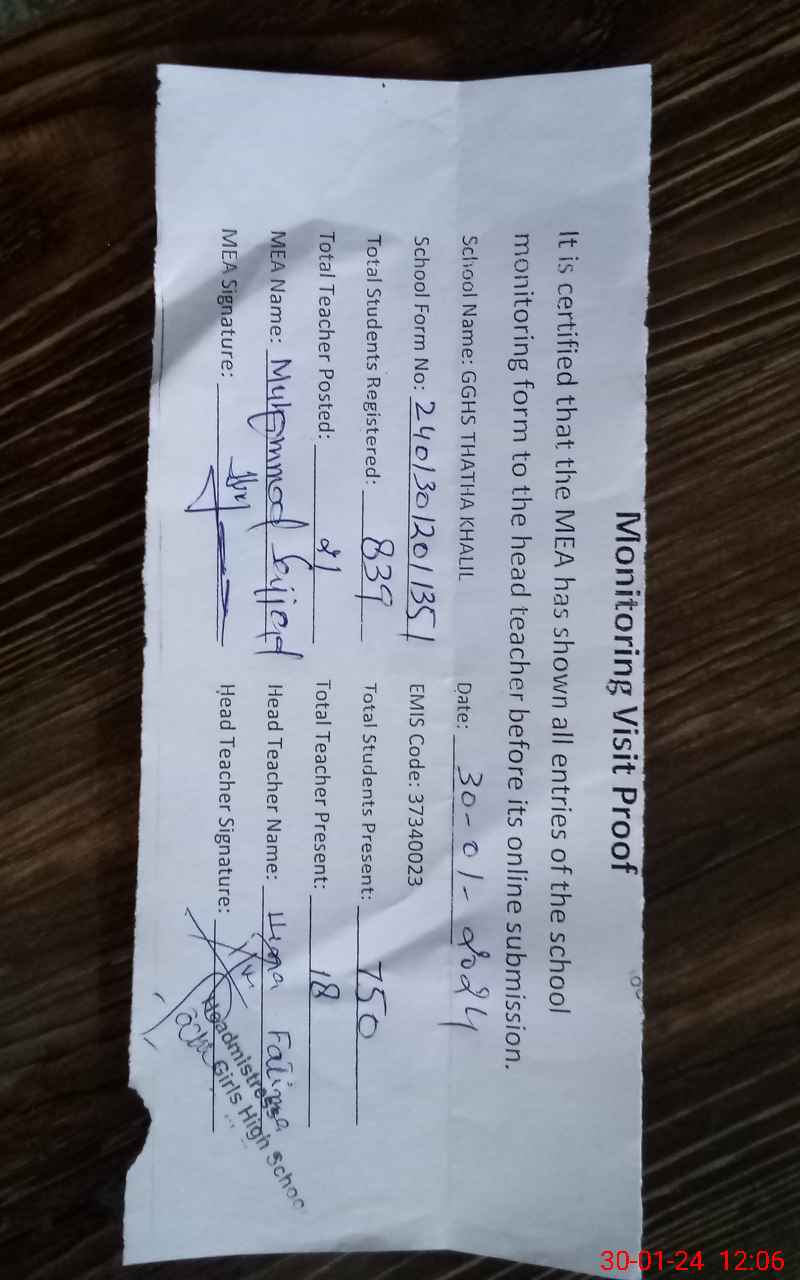 Monitoring Visit Proof
It is certified that the MEA has shown all entries of the school
monitoring form to the head teacher before its online submission.
School Name: GGHS THATHA KHALIL Date: 30-01-2024
School Form No: 24013012011351 EMIS Code: 37340023
Total Students Registered: 839 Total Students Present: 750
Total Teacher Posted: 21 Total Teacher Present: 18
MEA Name: Muhammad Sajjad Head Teacher Name: Hina Fatima
MEA Signature: Head Teacher Signature:
Headmistress
Girls High School
30-01-24 12:06